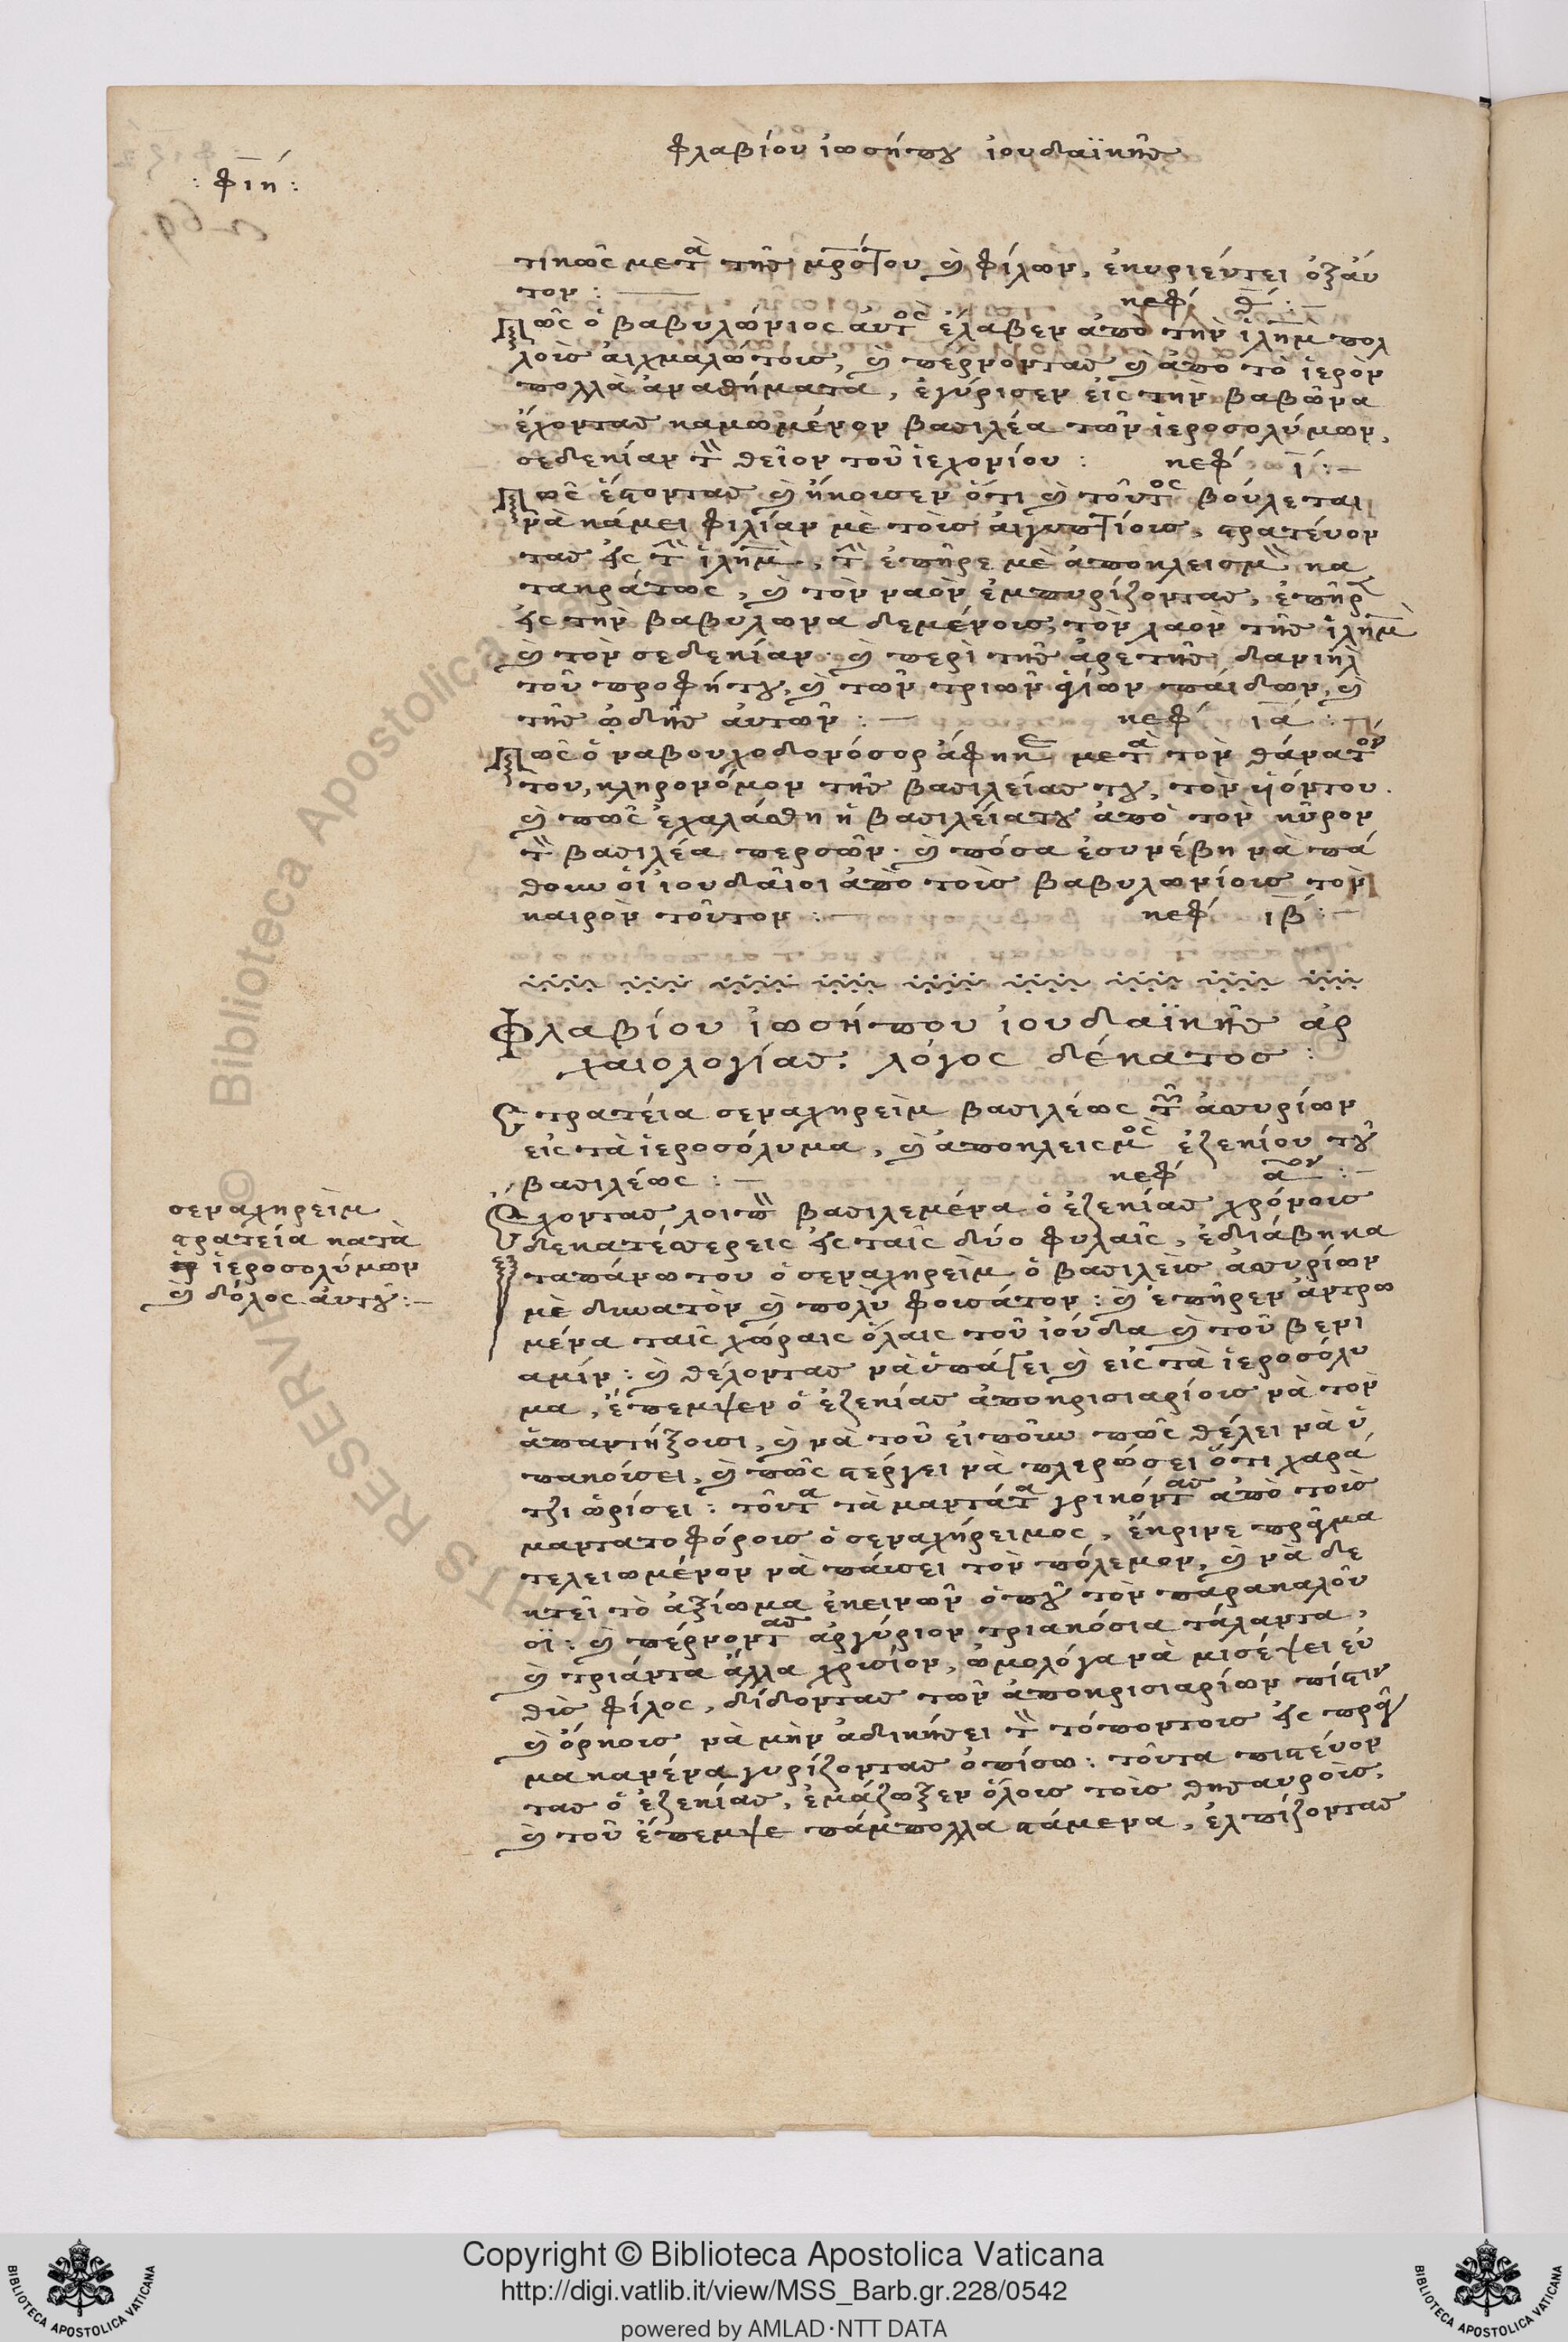 φλαβίου ἰωσήπου ἰουδαϊκῆς
: φιη :
τικῶς μετὰ τῆς μρ̅ό̅ς του καὶ φίλων, ἐκυριεύτει ὀξ αὐ
τον : κεφ θ :
Πῶς ὁ βαβυλώνιος αὐτὸς ἔλαβεν ἀπὸ τὴν ἱλημ πολ
λοὺς αἰχμαλώτους, καὶ πέρνοντας καὶ ἀπὸ τὸ ἱερὸν
πολλὰ ἀναθήματα, ἐγύρισεν εἰς τὴν βαβῶνα
ἔχοντας καμωμένον βασιλέα τῶν ἱεροσολύμων,
σεδεκίαν τὸν θεῖον τοῦ ἰεχονίου : κεφ ι :
Πῶς ἔστοντας καὶ ἤκουσεν ὅτι καὶ τοῦτος βούλεται
νὰ κάμει φιλίαν μὲ τοὺς αἰγυπτίους, στρατεύον
τας εἰς τὴν ἱλημ, τὴν ἐπῆρε μὲ ἀποκλεισμὸν κα
τακράτως, καὶ τὸν ναὸν ἐμπυρίζοντας, ἐπῆρε
εἰς τὴν βαβυλωνα δεμένους, τὸν λαὸν τῆς ἱλημ
καὶ τὸν σεδεκίαν· καὶ περὶ τῆς ἀρετῆς δανιὴλ
τοῦ προφήτου, καὶ τῶν τριῶν ἁγίων παίδων, καὶ
τῆς ᾠδῆς αὐτῶν : κεφ ια :
Πῶς ὁ ναβουχοδονόσορ ἀφῆκε μετὰ τὸν θάνατόν
του, κληρονόμον τῆς βασιλείας του, τὸν ὑιόν του.
καὶ πῶς ἐχαλάσθη ἡ βασιλεία του ἀπὸ τὸν κῦρον
τὸν βασιλέα περσῶν· καὶ πόσα ἐσυνέβη νὰ πά
θουν οἱ ἰουδαῖοι ἀπὸ τοὺς βαβυλωνίους τὸν
καιρὸν τοῦτον : κεφ ιβ :
Φλαβίου ἰωσήπου ἰουδαϊκῆς ἀρ
χαιολογίας. λόγος δέκατος :
Στρατεία σεναχηρεὶμ βασιλέως τῶν ἀσσυρίων
εἰς τὰ ἱεροσόλυμα, καὶ ἀποκλεισμὸς ἐζεκίου τοῦ
βασιλέως : κεφ αον :
Ἔχοντας λοιπὸν βασιλεμένα ὁ ἐζεκίας χρόνους
δεκατέσσερεις εἰς ταῖς δύο φυλαῖς, ἐδιάβηκα
ταπάνω του ὁ σεναχηρεὶμ ὁ βασιλεὺς ἀσσυρίων
μὲ δυνατὸν καὶ πολὺ φουσάτον : καὶ ἐπῆρεν ἀντρω
μένα ταῖς χώραις ὅλαις τοῦ ἰούδα καὶ τοῦ βενι
αμίν : καὶ θέλοντας νὰ ὑπάγει καὶ εἰς τὰ ἱεροσόλυ
μα, ἔπεμψεν ὁ ἐζεκίας ἀποκρισιαρίους νὰ τὸν
ἀπαντήξουσι, καὶ νὰ τοῦ εἰποῦν πῶς θέλει νὰ ὑ
πακούσει, καὶ πῶς στέργει νὰ πλερώσει ὅτι χαρά
τζι ὡρίσει : τοῦτα τὰ μαντάτα γρικόντας ἀπὸ τοὺς
μαντατοφόρους ὁ σεναχήρειμος, ἔκρινε πρᾶγμα
τελειωμένον νὰ παύσει τὸν πόλεμον, καὶ νὰ δε
κτεῖ τὸ ἀξίωμα ἐκεινῶν ὁποῦ τὸν παρακαλοῦ
σϊ : καὶ πέρνοντας ἀργύριον τριακόσια τάλαντα,
καὶ τριάντα ἄλλα χρυσίον, ὡμολόγα νὰ μισέψει εὐ
θὺς φίλος, δίδοντας τῶν ἀποκρισιαρίων πίστιν
καὶ ὅρκους νὰ μὴν ἀδικήσει τὸν τόπον τους εἰς πρᾶγ
μα κανένα γυρίζοντας ὀπίσω : τοῦτα πιστεύον
τας ὁ ἐζεκίας, ἐμάζωξεν ὅλους τοὺς θησαυρούς,
καὶ τοῦ ἔπεμψε πάμπολλα στάμενα, ἐλπίζοντας
σεναχηρεὶμ
στρατεία κατὰ
ἱεροσολύμων
καὶ δόλος αὐτοῦ :
© Biblioteca Apostolica
Copyright © Biblioteca Apostolica Vaticana
http://digi.vatlib.it/view/MSS_Barb.gr.228/0542
powered by AMLAD·NTT DATA
BIBLIOTECA APOSTOLICA VATICANA
BIBLIOTECA APOSTOLICA VATICANA